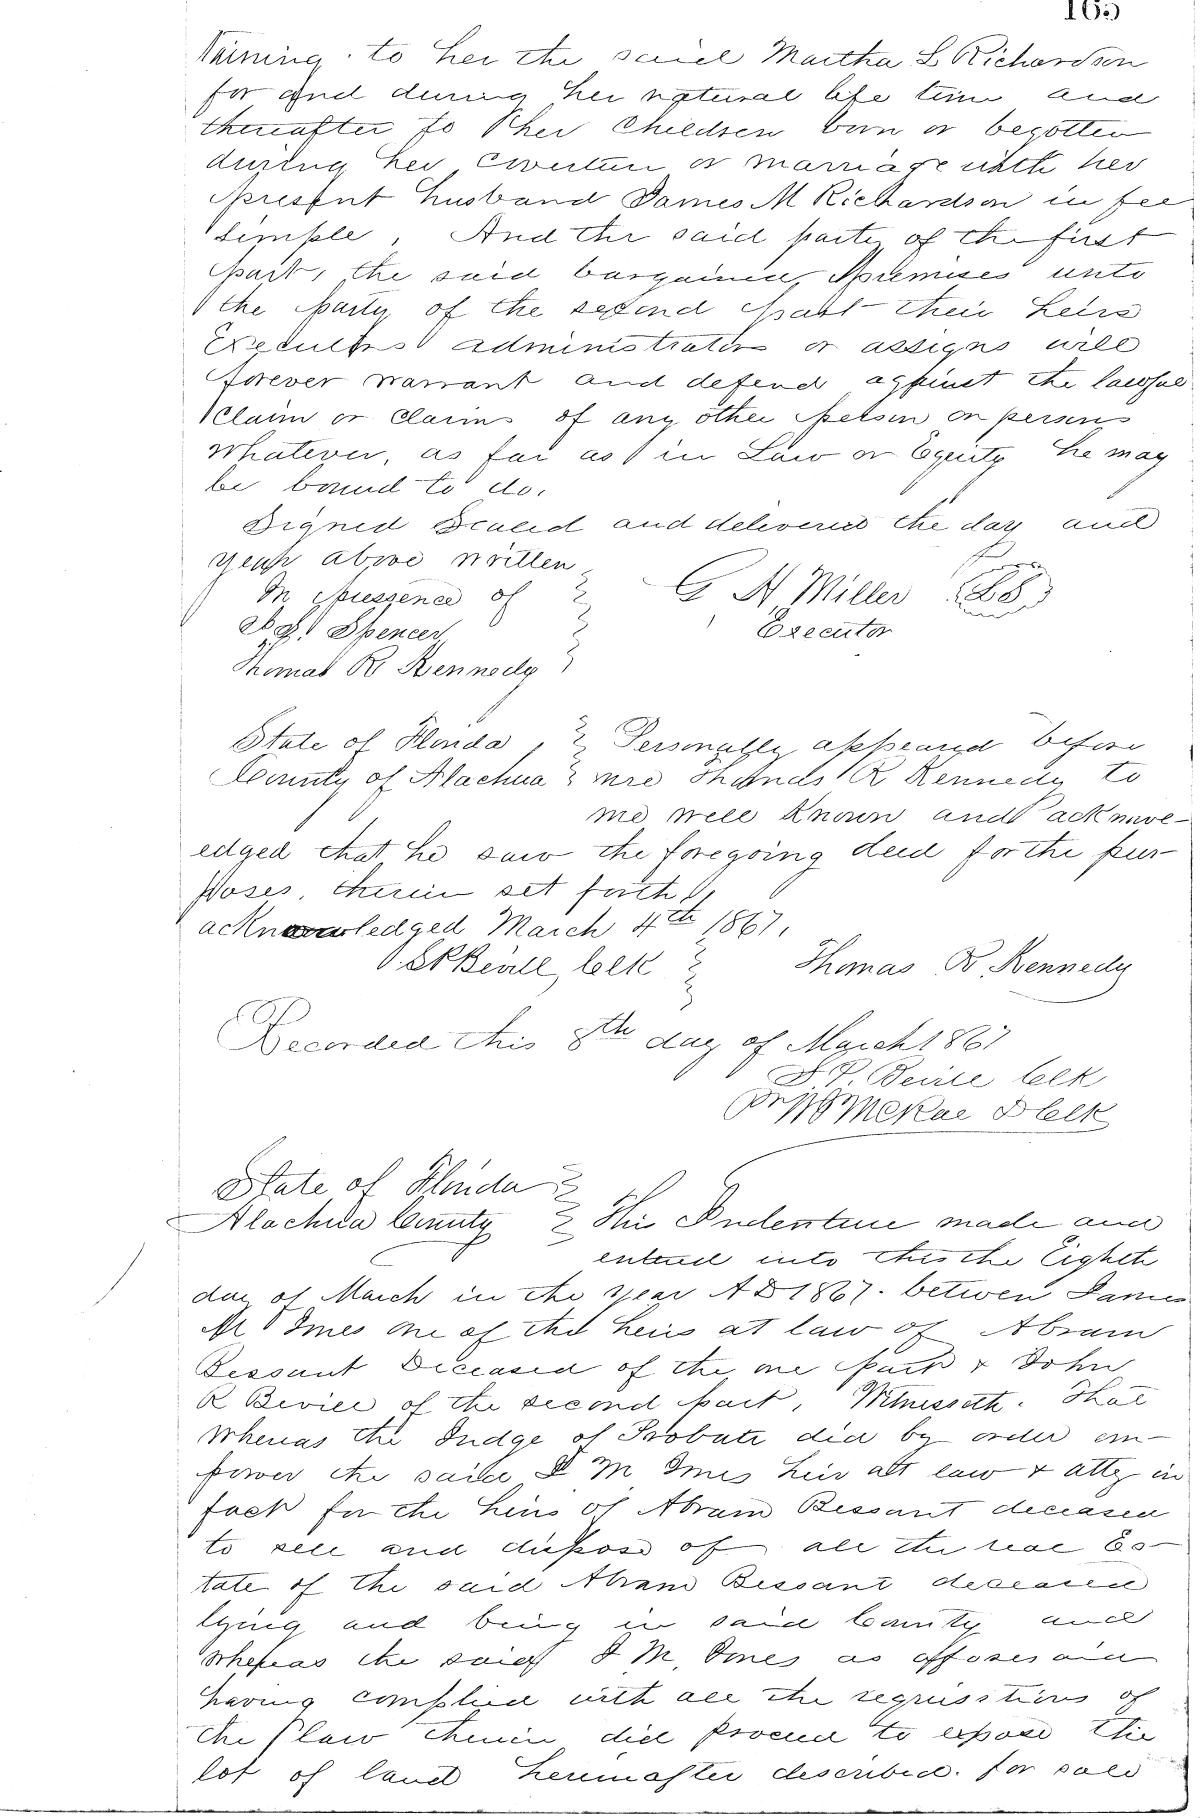 165
taining to her the said Martha L Richardson
for and during her natural life time and
thereafter to her Children born or begotten
during her Coverture or marriage with her
present husband James M Richardson in fee
Simple, And the said party of the first
part, the said bargained premises unto
the party of the second part their heirs
Executors administrators or assigns will
forever warrant and defend against the lawful
Claim or Claims of any other person or persons
whatever, as far as in Law or Equity he may
be bound to do.
Signed Sealed and delivered the day and
year above written
In pressence of G A Miller
Spencer Executor
Thomas R Kennedy
State of Florida, Personally appeared before
County of Alachua me Thomas R Kennedy to
me well Known and acknowl-
edged that he saw the foregoing deed for the pur
poses, therein set forth,
acknowledged March 4th 1867,
Bevill, Clk Thomas R. Kennedy
Recorded this 8th day of March 1867
S. P. Bevill Clk
Pr McRae D Clk
State of Florida
Alachua County This Indenture made and
entered into this the Eighth
day of March in the year AD 1867. between James
M Imes one of the heirs at law of Abram
Bessant Deceased of the one part & John
R Bevill of the second part, Witnesseth. That
Whereas the Judge of Probate did by order em-
power the said J M Imes heir att law & atty in
fact for the heirs of Abram Bessant deceased
to sell and dispose of all the real Es-
tate of the said Abram Bessant deceased
lying and being in said County and
whereas the said J M, Imes as afforesaid
having complied with all the requisitions of
the law therein did proceed to expose the
lot of land hereinafter described. for sale